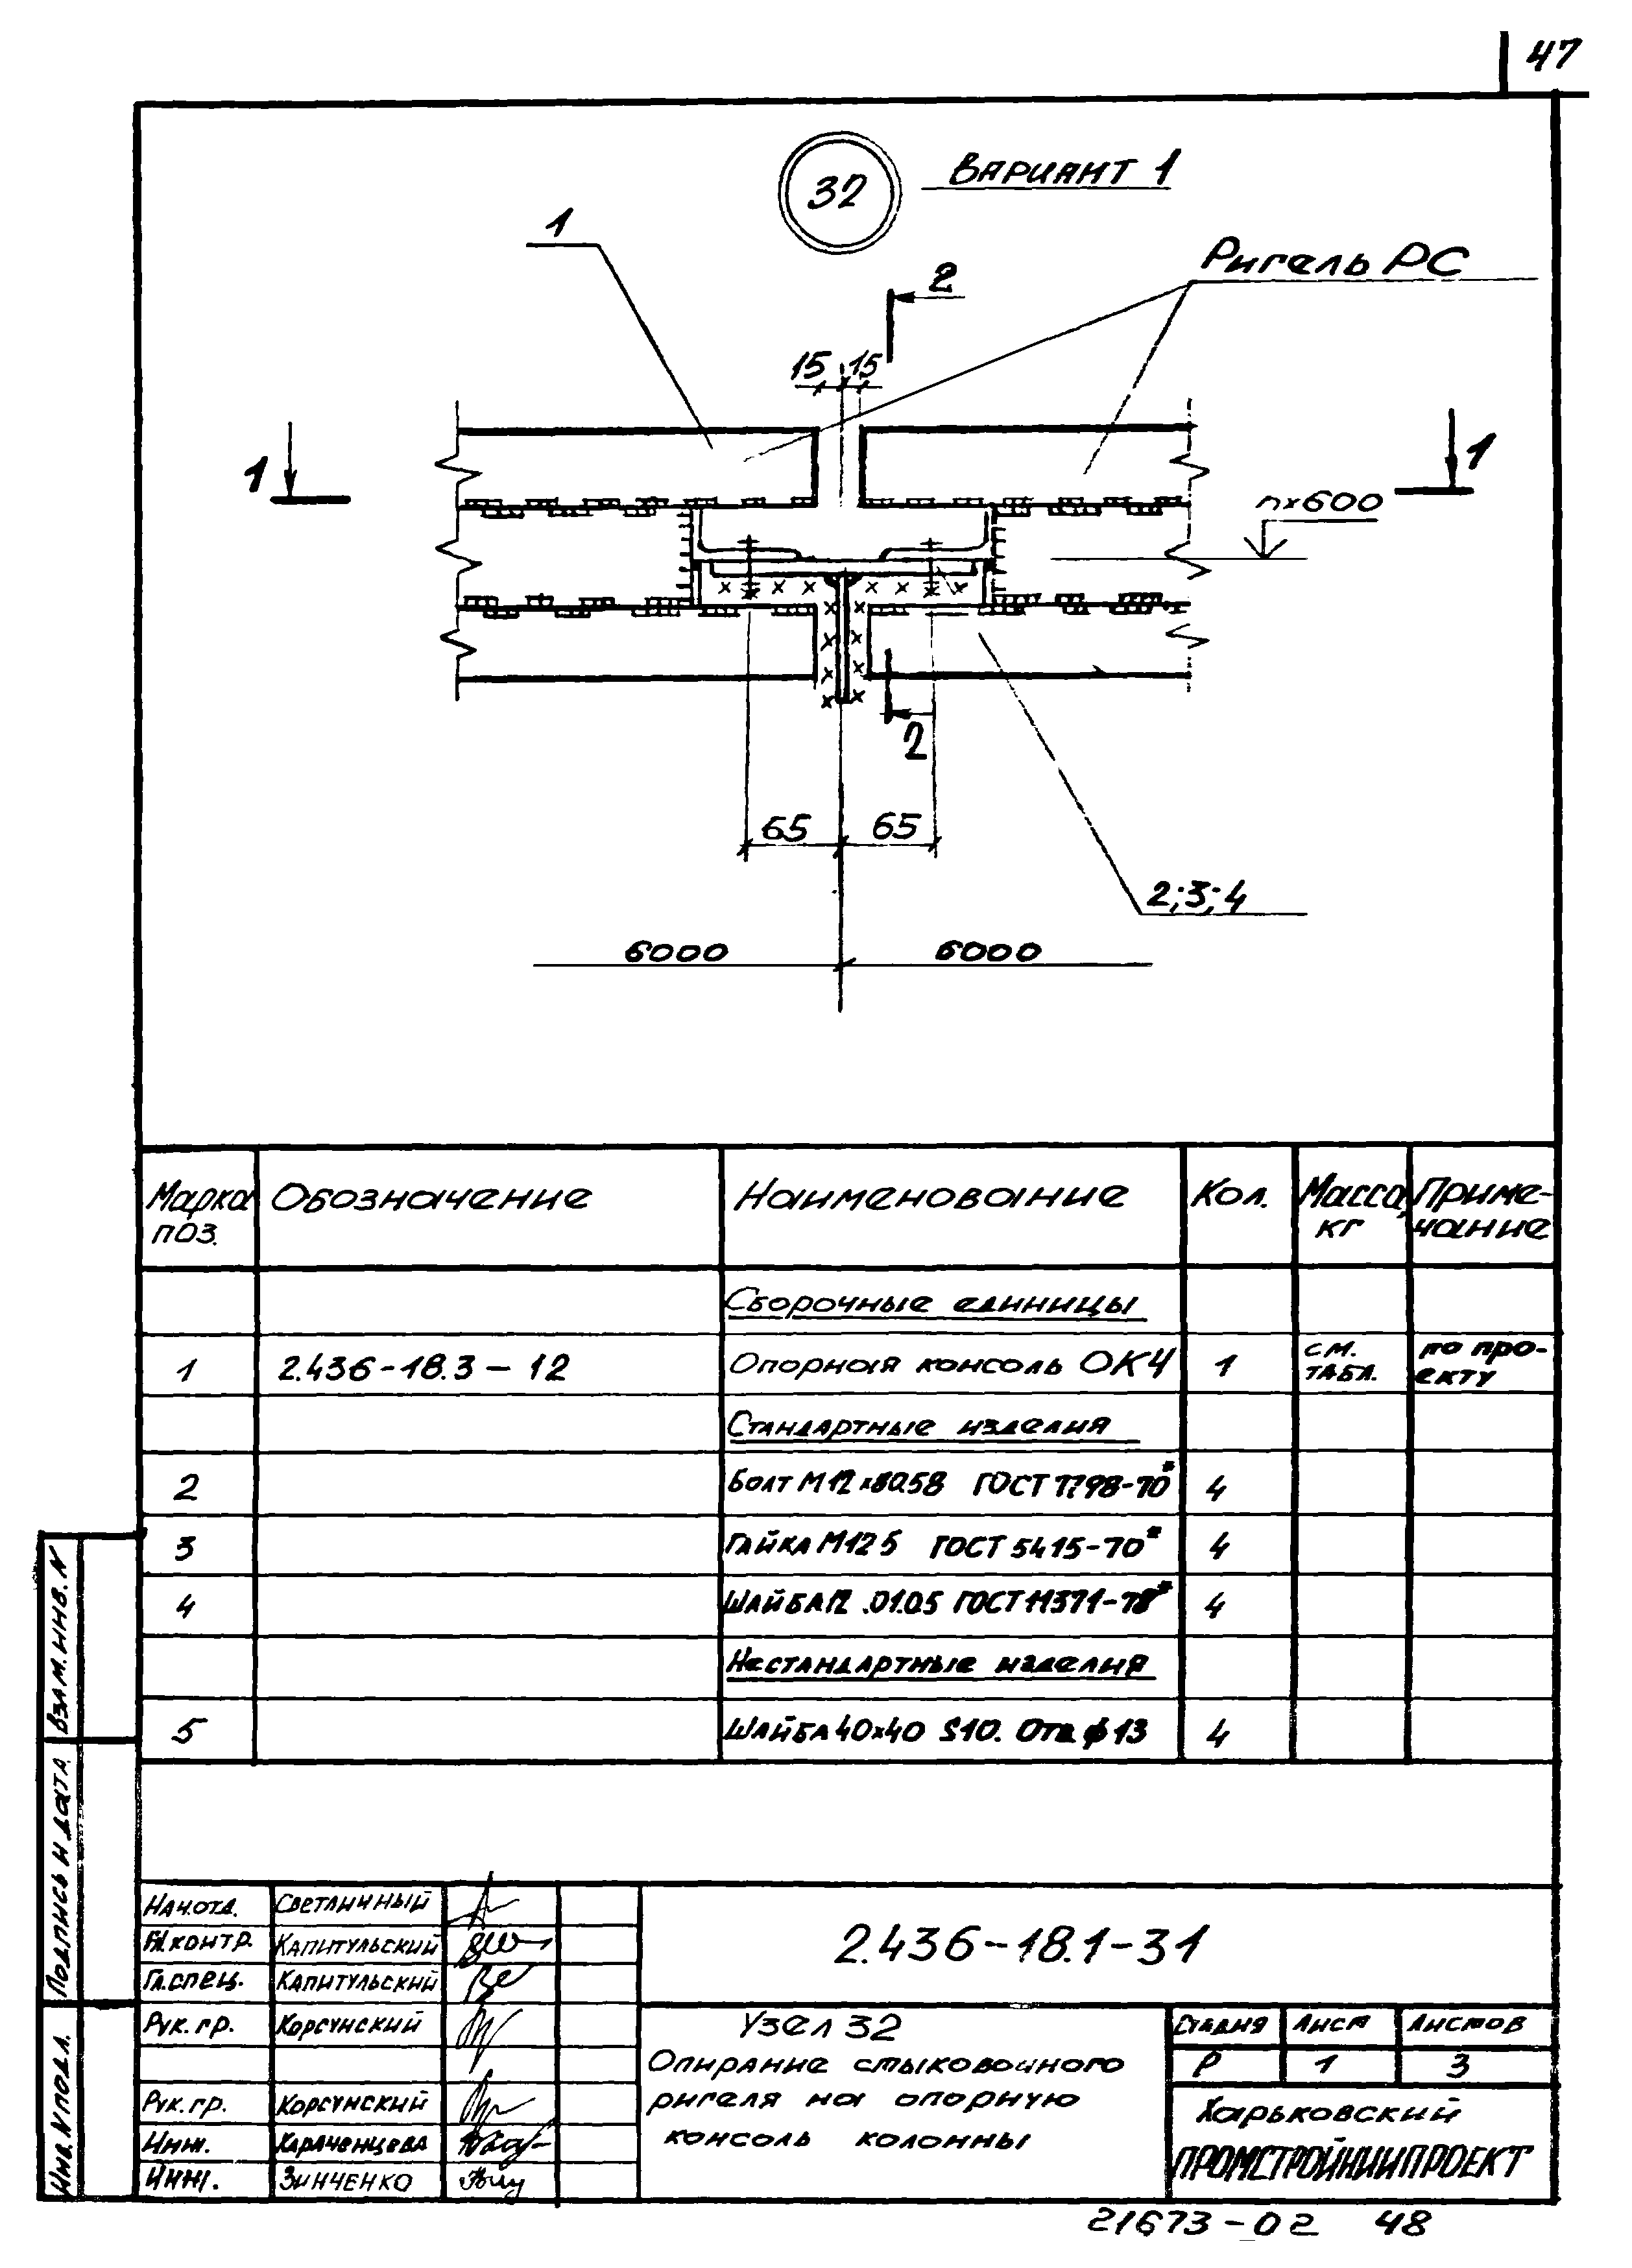 47
32 ВАРИАНТ 1
1
Ригель РС
2
15 15
1 1
п×600
2
65 65
2;3;4
6000 6000
Марка поз. Обозначение Наименование Кол. Масса, кг Примечание
Сборочные единицы
1 2.436-18.3-12 Опорная консоль ОК4 1 см. табл. по проекту
Стандартные изделия
2 Болт М12×80.58 ГОСТ 7798-70* 4
3 Гайка М12 5 ГОСТ 5915-70* 4
4 Шайба 12 .01.05 ГОСТ 11371-78* 4
Нестандартные изделия
5 Шайба 40×40 S10. Отв. ф13 4
Взам. инв. N
Подпись и дата
Инв. N подл.
Нач. отд. Светличный
Н. контр. Капитульский
Гл. спец. Капитульский
Рук. гр. Корсунский
Рук. гр. Корсунский
Инж. Караченцева
Инж. Зинченко
2.436-18.1-31
Узел 32
Опирание стыкованного
ригеля на опорную
консоль колонны
Стадия Лист Листов
Р 1 3
Харьковский
ПРОМСТРОЙНИИПРОЕКТ
21673-02 48